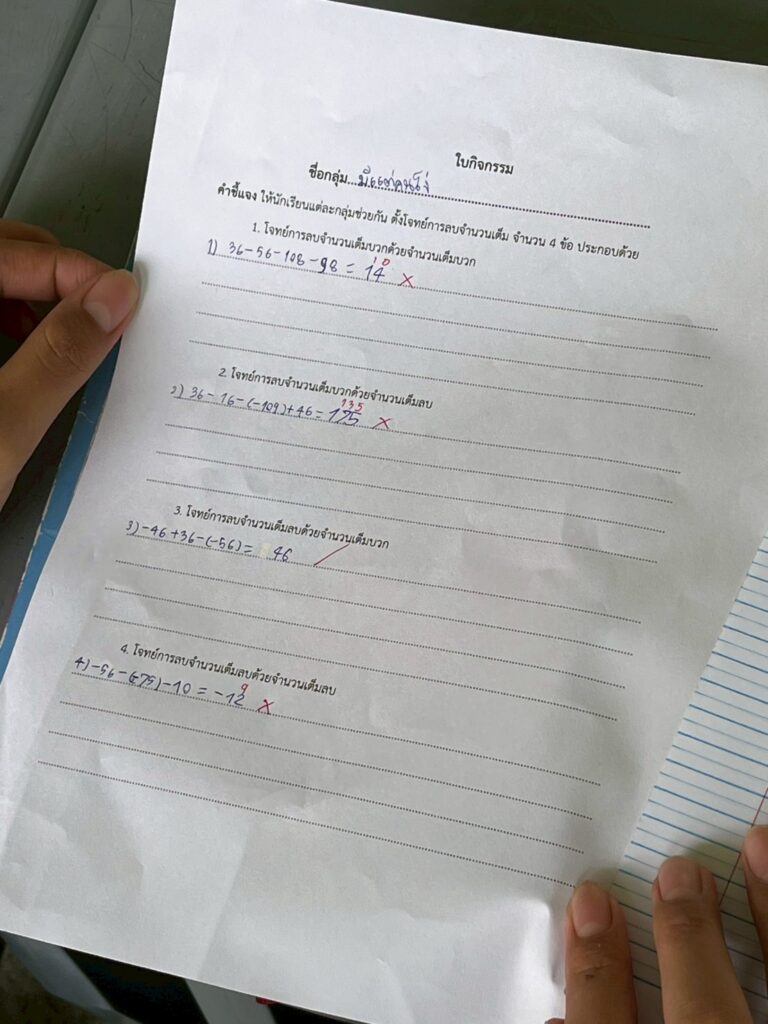 ใบกิจกรรม
ชื่อกลุ่ม....มีแต่คนโง่
คำชี้แจง ให้นักเรียนแต่ละกลุ่มช่วยกัน ตั้งโจทย์การลบจำนวนเต็ม จำนวน 4 ข้อ ประกอบด้วย
1. โจทย์การลบจำนวนเต็มบวกด้วยจำนวนเต็มบวก
10
1) 36-56-108-98 = 14 ×
2. โจทย์การลบจำนวนเต็มบวกด้วยจำนวนเต็มลบ
135
2) 36-16-(-109)+46 = 175 ×
3. โจทย์การลบจำนวนเต็มลบด้วยจำนวนเต็มบวก
3) -46+36-(-56) = 46 /
4. โจทย์การลบจำนวนเต็มลบด้วยจำนวนเต็มลบ
9
4) -56-(-75)-10 = -12 ×